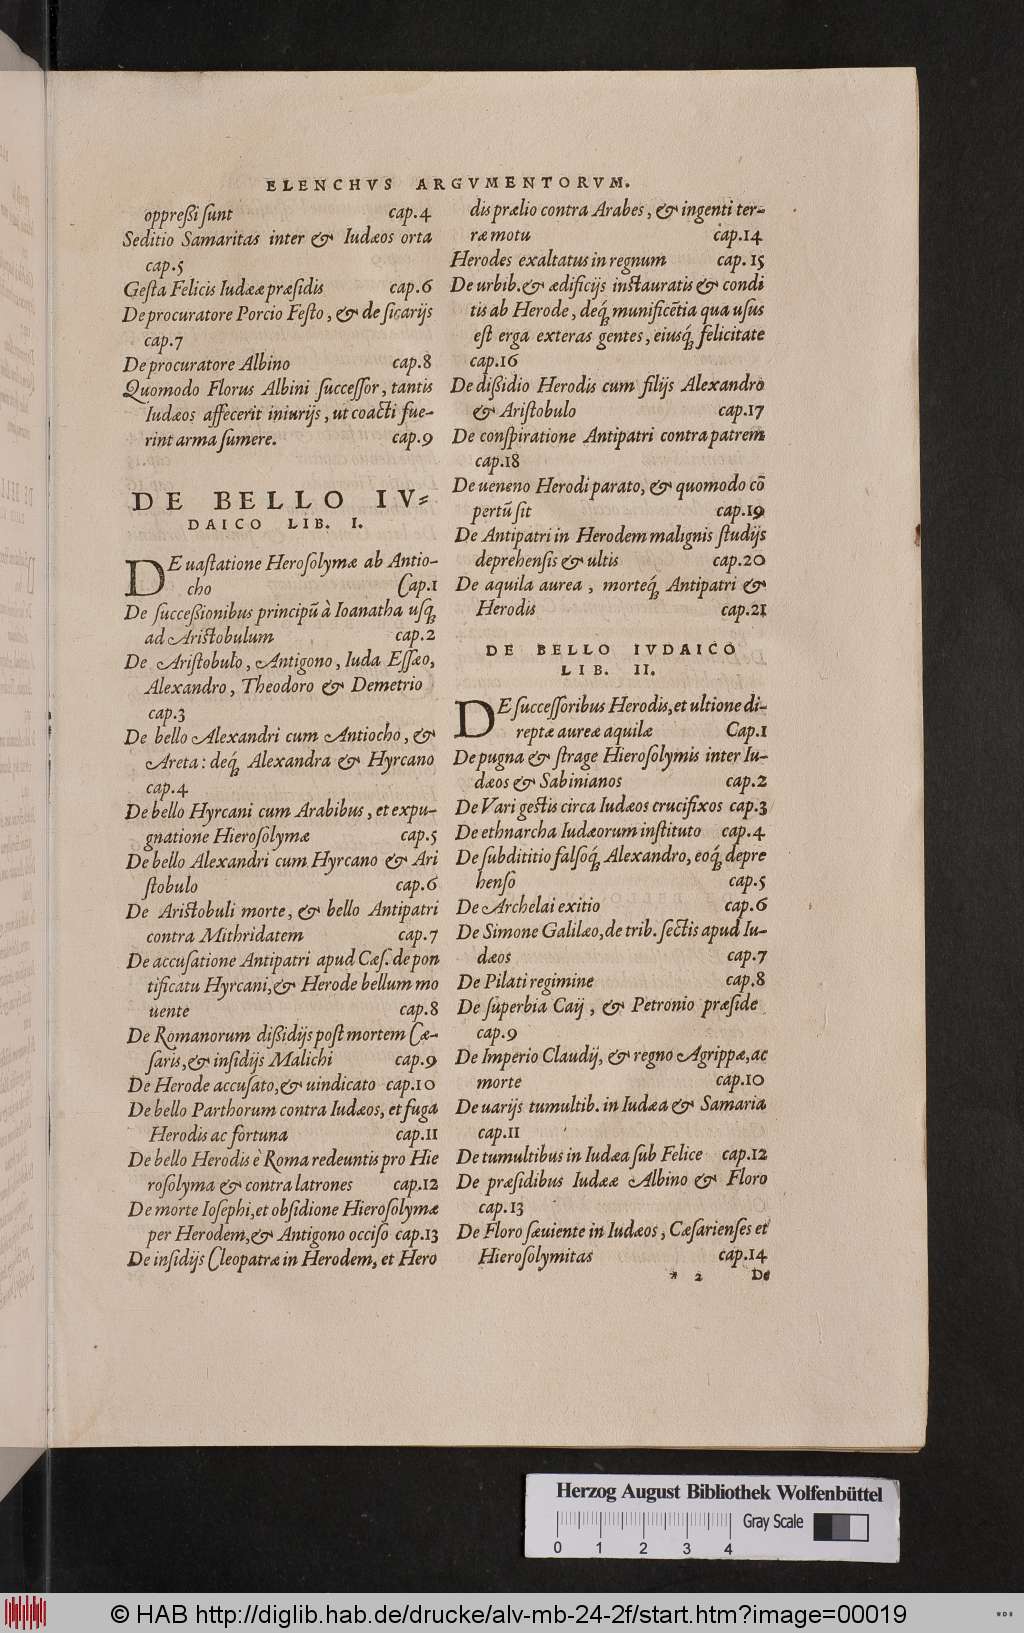 ELENCHVS ARGVMENTORVM.
oppreßi ſunt cap.4
Seditio Samaritas inter & Iudæos orta
cap.5
Geſta Felicis Iudææ præſidis cap.6
De procuratore Porcio Feſto, & de ſicarijs
cap.7
De procuratore Albino cap.8
Quomodo Florus Albini ſucceſſor, tantis
Iudæos affecerit iniurijs, ut coacti fue-
rint arma ſumere. cap.9
DE BELLO IV=
DAICO LIB. I.
DE uaſtatione Heroſolymæ ab Antio-
cho Cap.1
De ſucceßionibus principũ à Ioanatha uſq́;
ad Ariſtobulum cap.2
De Ariſtobulo, Antigono, Iuda Eſſæo,
Alexandro, Theodoro & Demetrio
cap.3
De bello Alexandri cum Antiocho, &
Areta: deq́; Alexandra & Hyrcano
cap.4
De bello Hyrcani cum Arabibus, et expu-
gnatione Hieroſolymæ cap.5
De bello Alexandri cum Hyrcano & Ari
ſtobulo cap.6
De Ariſtobuli morte, & bello Antipatri
contra Mithridatem cap.7
De accuſatione Antipatri apud Cæſ. de pon
tificatu Hyrcani, & Herode bellum mo
uente cap.8
De Romanorum dißidijs poſt mortem Cæ-
ſaris, & inſidijs Malichi cap.9
De Herode accuſato, & uindicato cap.10
De bello Parthorum contra Iudæos, et fuga
Herodis ac fortuna cap.11
De bello Herodis è Roma redeuntis pro Hie
roſolyma & contra latrones cap.12
De morte Ioſephi, et obſidione Hieroſolymæ
per Herodem, & Antigono occiſo cap.13
De inſidijs Cleopatræ in Herodem, et Hero
dis prælio contra Arabes, & ingenti ter-
ræ motu cap.14
Herodes exaltatus in regnum cap.15
De urbib. & ædificijs inſtauratis & condi
tis ab Herode, deq́; munificẽtia qua uſus
eſt erga exteras gentes, eiusq́; felicitate
cap.16
De dißidio Herodis cum filijs Alexandro
& Ariſtobulo cap.17
De conſpiratione Antipatri contra patrem
cap.18
De ueneno Herodi parato, & quomodo cõ
pertũ ſit cap.19
De Antipatri in Herodem malignis ſtudijs
deprehenſis & ultis cap.20
De aquila aurea, morteq́; Antipatri &
Herodis cap.21
DE BELLO IVDAICO
LIB. II.
DE ſucceſſoribus Herodis, et ultione di-
reptæ aureæ aquilæ Cap.1
De pugna & ſtrage Hieroſolymis inter Iu-
dæos & Sabinianos cap.2
De Vari geſtis circa Iudæos crucifixos cap.3
De ethnarcha Iudæorum inſtituto cap.4
De ſubdititio falſoq́; Alexandro, eoq́; depre
henſo cap.5
De Archelai exitio cap.6
De Simone Galilæo, de trib. ſectis apud Iu-
dæos cap.7
De Pilati regimine cap.8
De ſuperbia Caij, & Petronio præſide
cap.9
De Imperio Claudij, & regno Agrippæ, ac
morte cap.10
De uarijs tumultib. in Iudæa & Samaria
cap.11
De tumultibus in Iudæa ſub Felice cap.12
De præſidibus Iudææ Albino & Floro
cap.13
De Floro ſæuiente in Iudæos, Cæſarienſes et
Hieroſolymitas cap.14
* 2 De
Herzog August Bibliothek Wolfenbüttel
Gray Scale
0 1 2 3 4
© HAB http://diglib.hab.de/drucke/alv-mb-24-2f/start.htm?image=00019